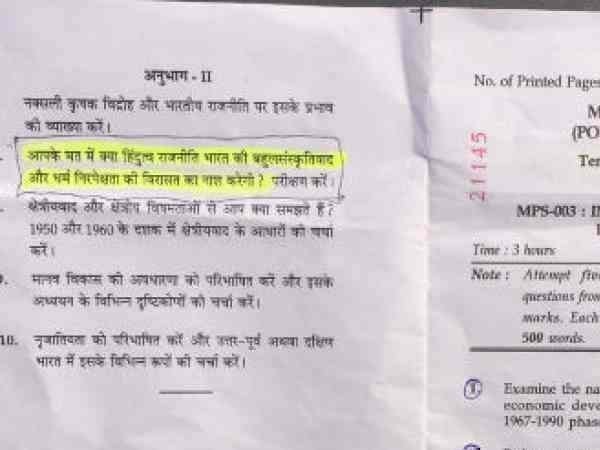 अनुभाग - II
नक्सली कृषक विद्रोह और भारतीय राजनीति पर इसके प्रभाव
की व्याख्या करें।
आपके मत में क्या हिंदुत्व राजनीति भारत की बहुलसंस्कृतिवाद
और धर्म निरपेक्षता की विरासत का नाश करेगी? परीक्षण करें।
क्षेत्रीयवाद और क्षेत्रीय विषमताओं से आप क्या समझते हैं?
1950 और 1960 के दशक में क्षेत्रीयवाद के आधारों की चर्चा
करें।
9. मानव विकास की अवधारणा को परिभाषित करें और इसके
अध्ययन के विभिन्न दृष्टिकोणों की चर्चा करें।
10. नृजातियता को परिभाषित करें और उत्तर-पूर्व अथवा दक्षिण
भारत में इसके विभिन्न रूपों की चर्चा करें।
No. of Printed Pages
M
(PO
Ter
21145
MPS-003 : I
Time : 3 hours
Note : Attempt five
questions from
marks. Each
500 words.
1. Examine the na
economic deve
1967-1990 phas